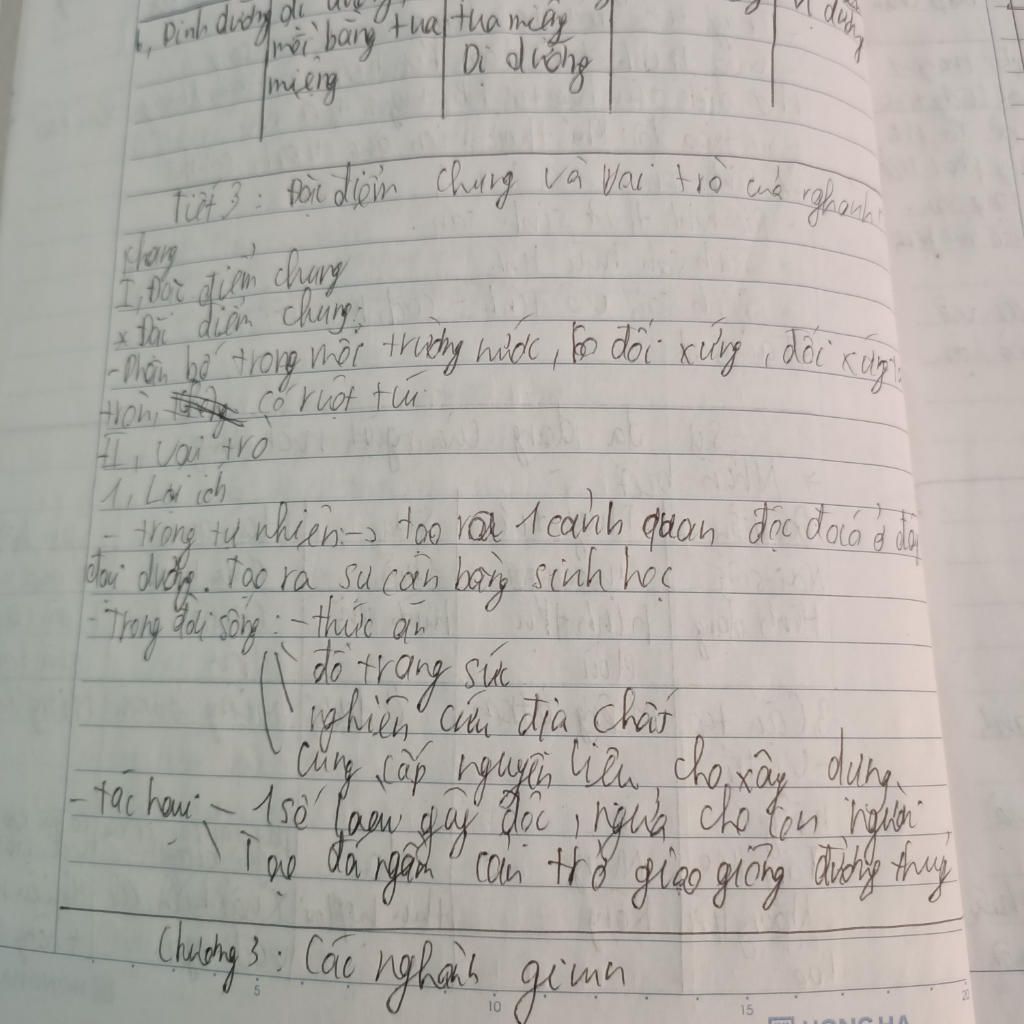 6, Dinh dưỡng dị dưỡng
mồi bằng tua
miệng
tua miệng
Dị dưỡng
dị dưỡng
Tiết 3: Đặc điểm chung và vai trò của nghanh
khang
I, Đặc điểm chung
x Đặc điểm chung:
- Phân bố trong môi trường nước, Ko đối xứng, đối xứng
tròn, có ruột túi
II, vai trò
1, Lợi ích
- trong tự nhiên: -> tạo ra 1 cảnh quan độc đoáo ở đáy
đại dương. Tạo ra sự cân bằng sinh học
- Trong đời sống: - thức ăn
đồ trang sức
nghiên cứu địa chất
cung cấp nguyên liêu cho xây dung
- tác hai: - 1 số gây độc, ngứa cho con người
Tạo đá ngầm cản trở giao giông đường thuỷ
Chương 3: Các nghành giun
5 10 15 20
HONG HA